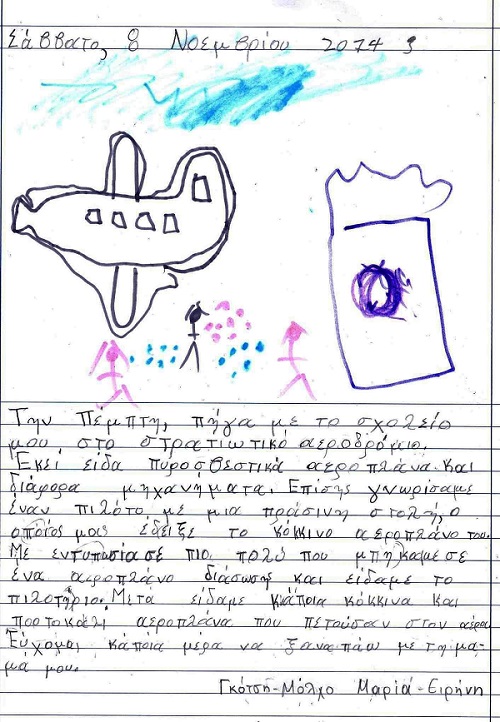 Σάββατο, 8 Νοεμβρίου 2014
Την Πέμπτη, πήγα με το σχολείο
μου στο στρατιωτικό αεροδρόμιο.
Εκεί είδα πυροσβεστικά αεροπλάνα και
διάφορα μηχανήματα. Επίσης γνωρίσαμε
έναν πιλότο με μια πράσινη στολή, ο
οποίος μας έδειξε το κόκκινο αεροπλάνο του.
Με εντυπωσίασε πιο πολύ που μπήκαμε σε
ένα αεροπλάνο διάσωσης και είδαμε το
πιλοτήριο. Μετά είδαμε κάποια κόκκινα και
πορτοκαλί αεροπλάνα που πετούσαν στον αέρα.
Εύχομαι κάποια μέρα να ξαναπάω με τη μα-
μά μου.
Γκότση-Μόλχο Μαρία-Ειρήνη